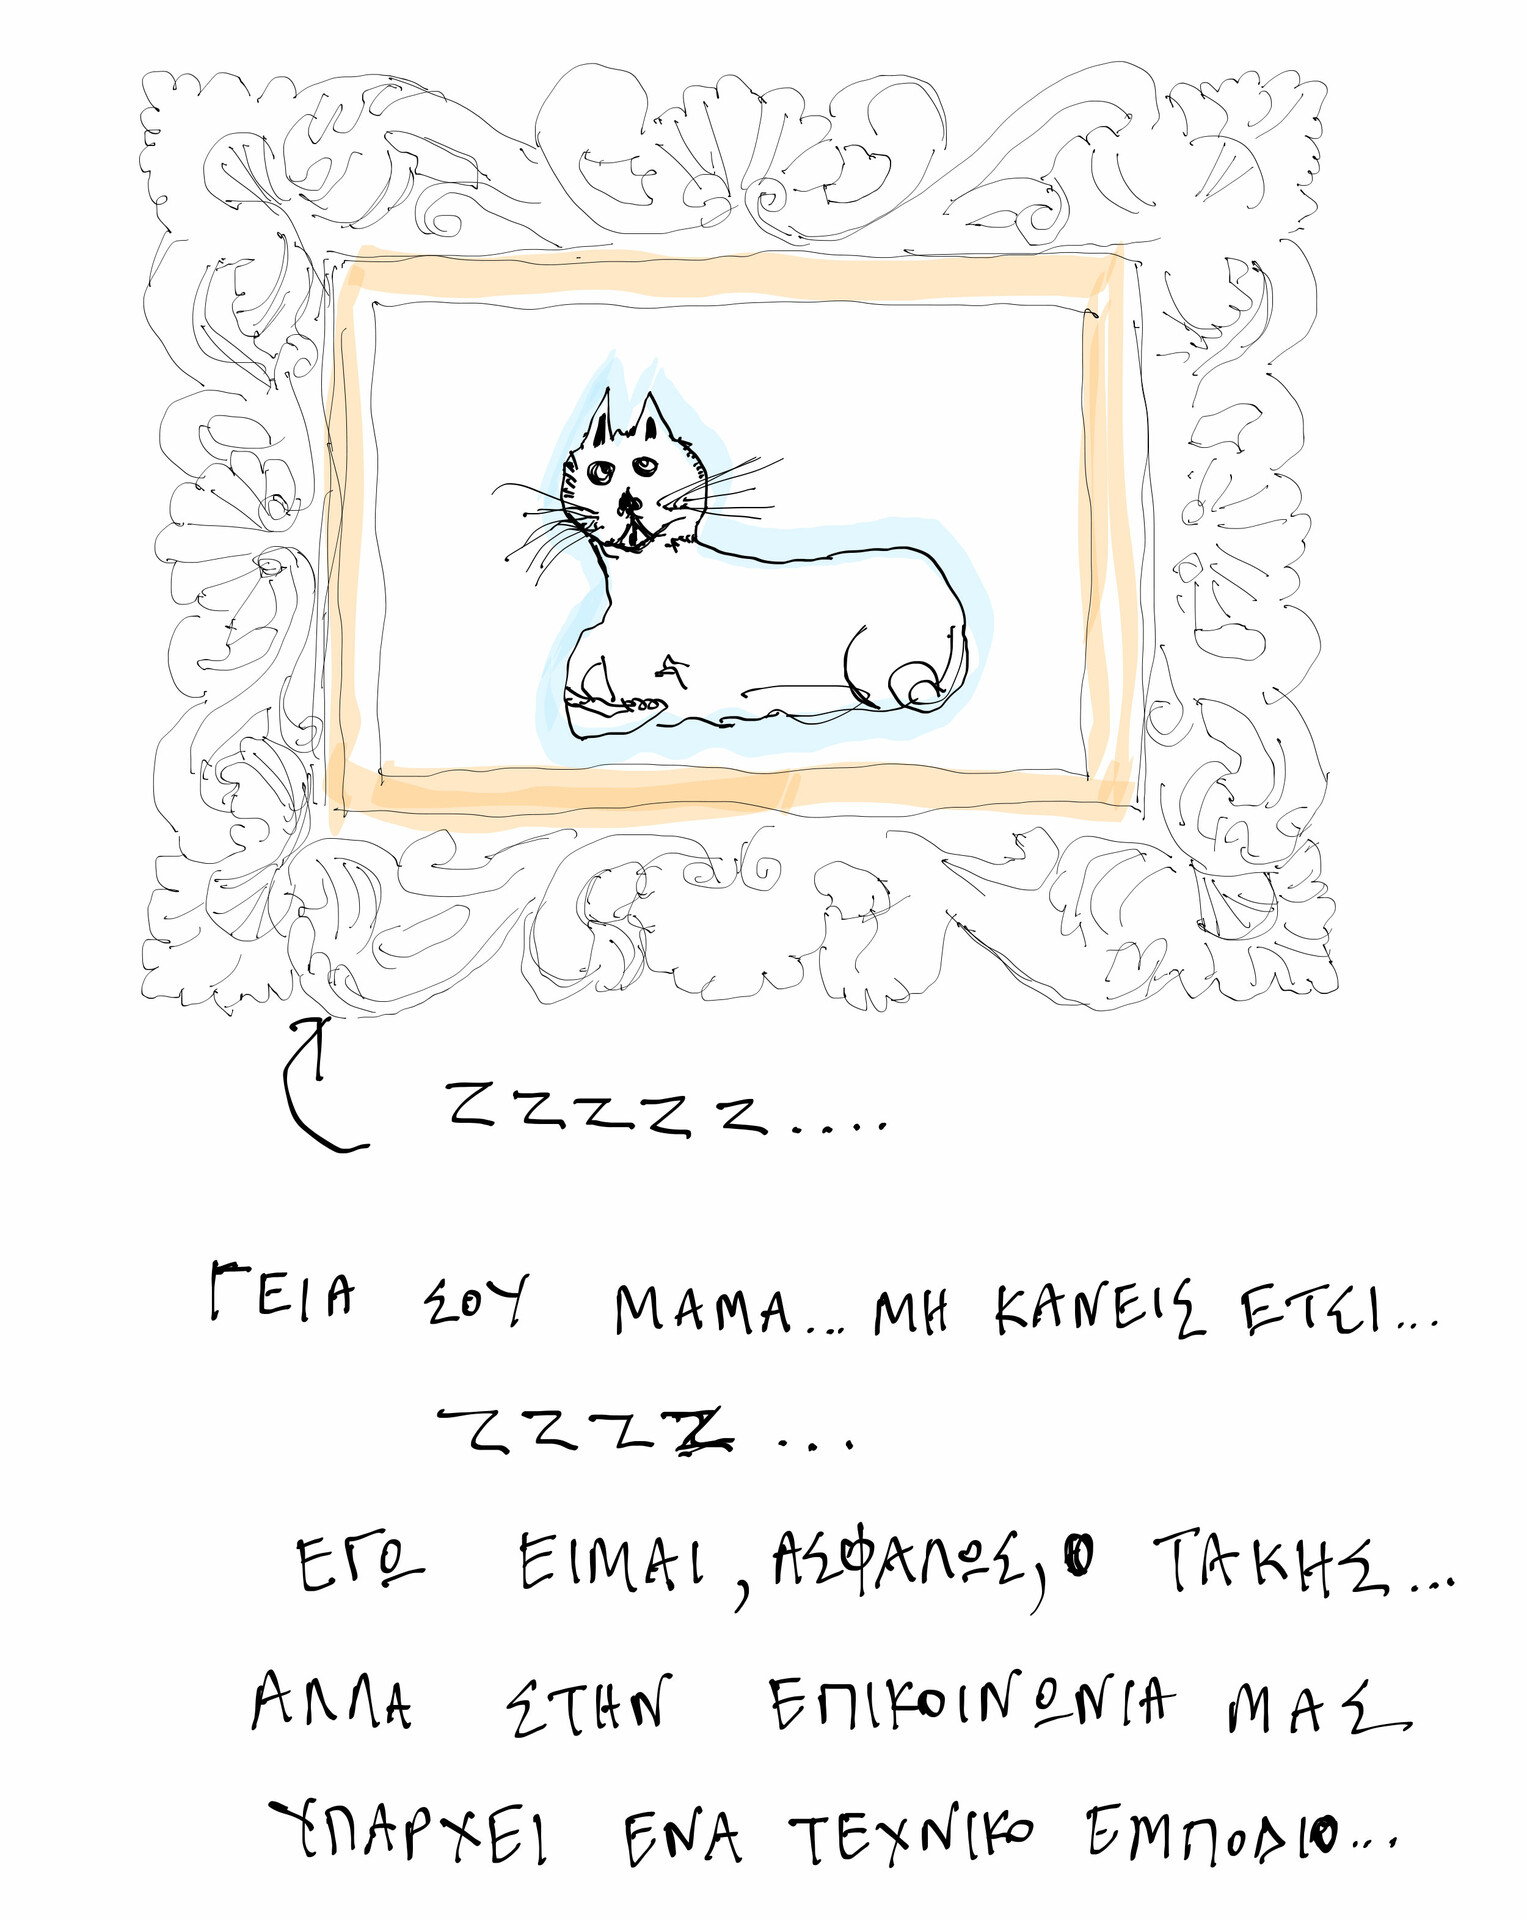 ZZZZZ....
ΓΕΙΑ ΣΟΥ ΜΑΜΑ... ΜΗ ΚΑΝΕΙΣ ΕΤΣΙ...
ZZZZ ...
ΕΓΩ ΕΙΜΑΙ, ΑΣΦΑΛΩΣ, Ο ΤΑΚΗΣ...
ΑΛΛΑ ΣΤΗΝ ΕΠΙΚΟΙΝΩΝΙΑ ΜΑΣ
ΥΠΑΡΧΕΙ ΕΝΑ ΤΕΧΝΙΚΟ ΕΜΠΟΔΙΟ...